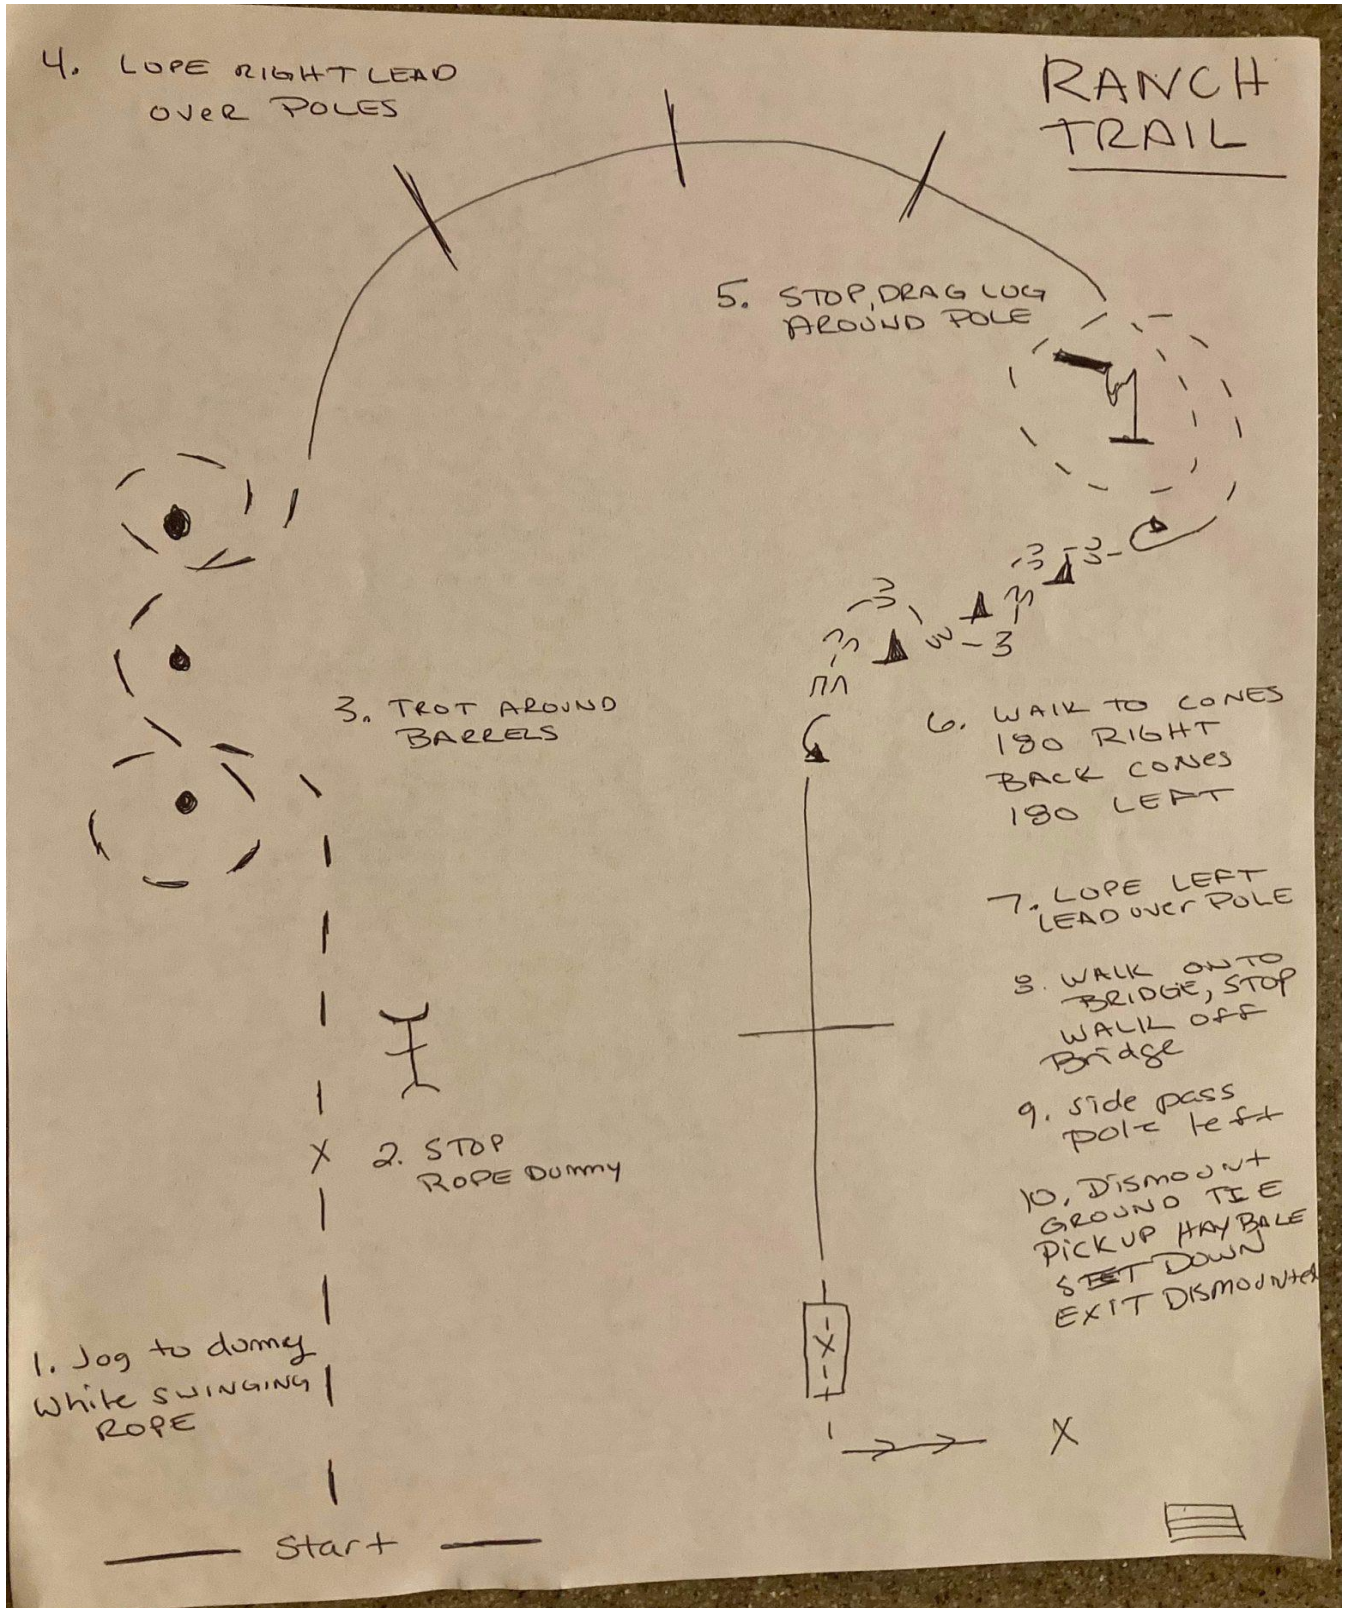 4. LOPE RIGHT LEAD
OVER POLES
RANCH
TRAIL
5. STOP, DRAG LOG
AROUND POLE
3. TROT AROUND
BARRELS
6. WALK TO CONES
180 RIGHT
BACK CONES
180 LEFT
7. LOPE LEFT
LEAD over POLE
8. WALK ONTO
BRIDGE, STOP
WALK OFF
Bridge
9. side pass
pole left
2. STOP
ROPE DUMMY
10. Dismount
GROUND TIE
PICKUP HAY BALE
SET DOWN
EXIT DISMOUNTED
1. Jog to dummy
White SWINGING
ROPE
Start